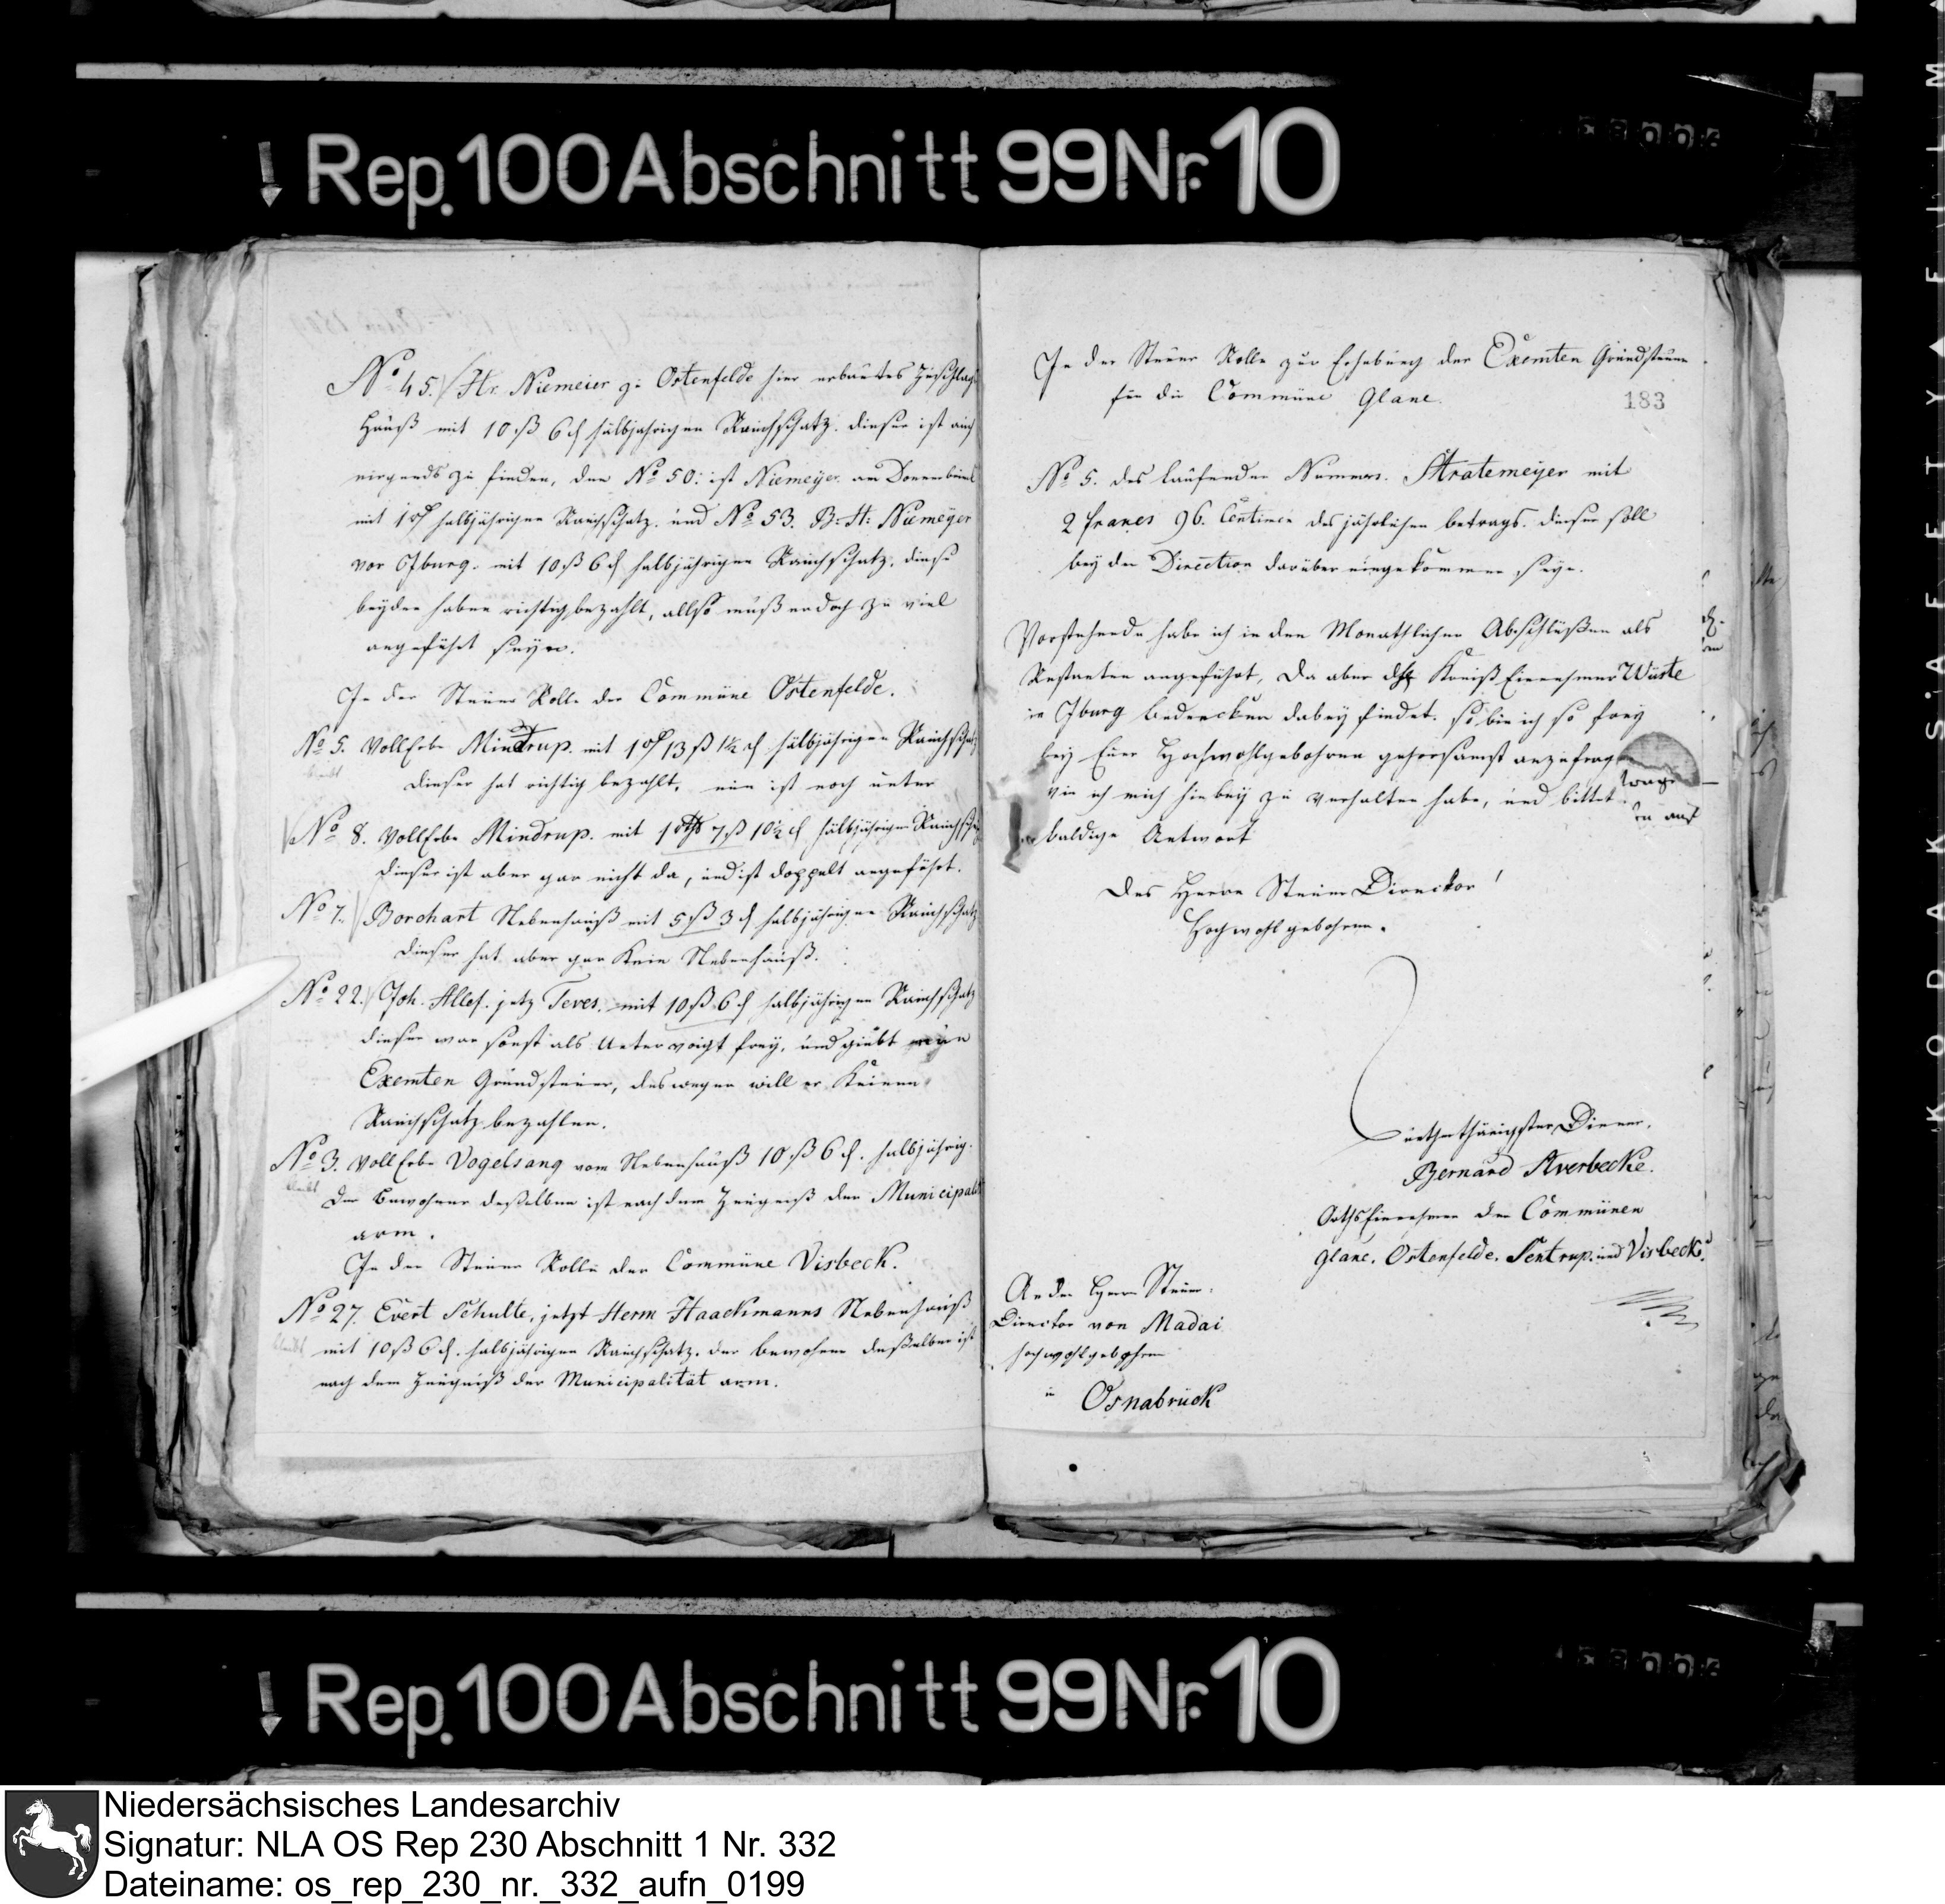 Rep. 100 Abschnitt 99 Nr. 10
No 45. Hr. Niemeier z: Ostenfelde hier erbautes Zuschlag
Hauß mit 10 ß 6 d halbjahrigen Rauchschatz. dieser ist auch
nirgends zu finden, den No 50: ist Niemeyer am
mit 1 rt halbjährigen Rauchschatz. und No 53. B: H: Niemeyer
vor Iburg. mit 10 ß 6 d halbjährigen Rauchschatz, diese
beyden haben richtig bezahlt, allso muß er doch zu viel
angeführt seyn.
In der Steuer Rolle der Commüne Ostenfelde.
No 5. VollErbe Mindrup. mit 1 rt 13 ß 1½ d halbjährigen Rauchschatz
dieser hat richtig bezahlt, nun ist noch unter
No 8. VollErbe Mindrup. mit 1 rt 7 ß 10½ d halbjährigen Rauchschatz
dieser ist aber gar nicht da, und ist doppelt angeführt.
No 7. Borchart Nebenhauß mit 5 ß 3 d halbjährigen Rauchschatz
dieser hat aber gar kein Nebenhauß.
No 22. Joh. Allef. jetz Teves. mit 10 ß 6 d halbjährigen Rauchschatz
dieser war sonst als Untervoigt frey, und giebt nun
Exemten Grundsteuer, deswegen will er keinen
Rauchschatz bezahlen.
No 3. VollErbe Vogelsang vom Nebenhauß 10 ß 6 d. halbjährig.
bleibt
Der Bewohner desselben ist nach dem Zeugniß der Municipalit
arm.
In der Steuer Rolle der Commüne Visbeck.
No 27. Evert Schulte, jetzt Herm Haackmanns Nebenhauß
bleibt
mit 10 ß 6 d. halbjährigen Rauchschatz. der bewohner deßelben ist
nach dem Zeugniß der Municipalität arm.
In der Steuer Rolle zur Erhebung der Exemten Grundsteuer
für die Commüne Glane.
183
No 5. des laufenden Numers. Stratemeyer mit
2 francs 96. Centimen des jährlichen betrags. dieser soll
bey der Direction darüber eingekommen seyn.
Vorstehende habe ich in den Monathlichen Abschlüßen als
Restanten angeführt, Da aber der Kreiß Einnehmer Wüste
in Iburg bedencken dabey findet. so bin ich so frey
bey Euer Hochwohlgebohren gehorsamst anzufragen
wie ich mich hiebey zu verhalten habe, und bittet
um baldige Antwort
Des Herrn Steuer Direcktor!
Hochwohlgebohren.
unterthänigster Diener,
Bernard Averbecke.
OrthsEinnehmer der Commünen
Glane. Ostenfelde. Sentrup. und Visbeck.
An den Herrn Steuer
Director von Madai
hochwohlgebohren
in Osnabrück
Rep. 100 Abschnitt 99 Nr. 10
KODAK SAFETY FILM
Niedersächsisches Landesarchiv
Signatur: NLA OS Rep 230 Abschnitt 1 Nr. 332
Dateiname: os_rep_230_nr._332_aufn_0199